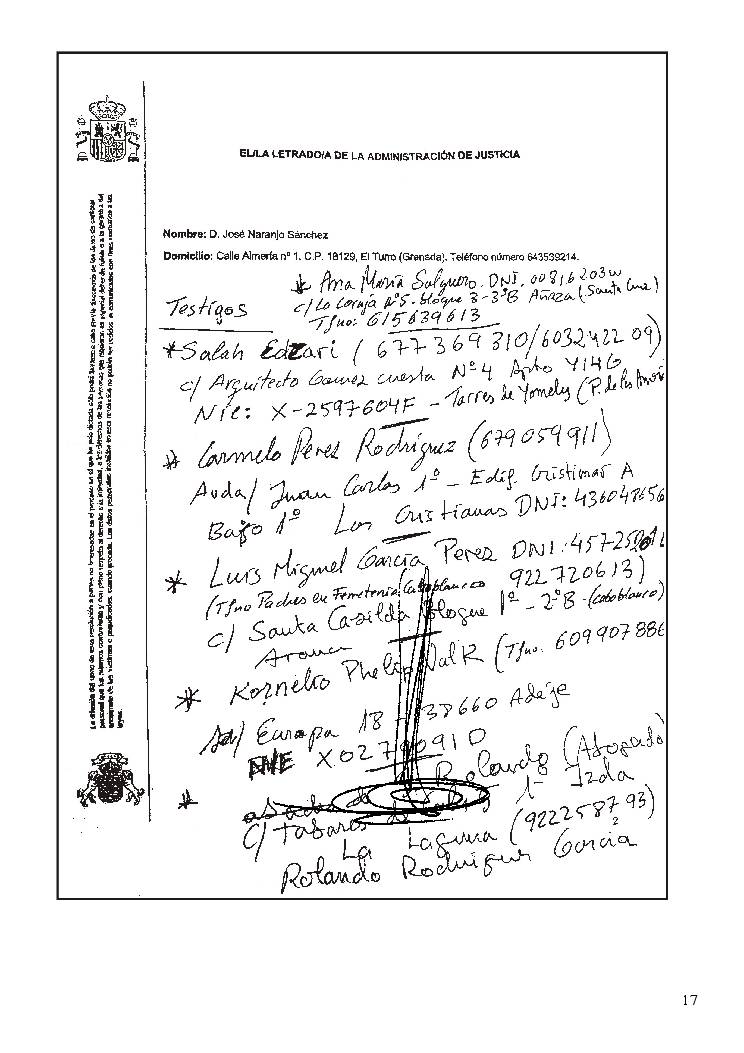 EL/LA LETRADO/A DE LA ADMINISTRACIÓN DE JUSTICIA
Nombre: D. José Naranjo Sánchez
Domicilio: Calle Almería nº 1. C.P. 18129, El Turro (Granada). Teléfono número 643539214.
* Ana María Salguero. DNI. 00816203W
Testigos
c/ La Coruja Nº5. bloque 3-3ºB Añaza (Santa Cruz)
Tfno: 615639613
*Salah Edzari (677369310/603242209)
c/ Arquitecto Gomez cuesta Nº4 Apto Y14G
Nie: X-2597604F - Torres de Yomely (P. de las Amé
* Carmelo Perez Rodriguez (679059911)
Avda/ Juan Carlos 1º - Edif. Cristimar A
Bajo 1º Los Cristianos DNI: 43604865G
* Luis Miguel García Perez DNI:
(Tfno Padres en Ferreteria Caboblanco 922720613)
c/ Santa Casilda Bloque 1º - 2ºB - (Caboblanco)
Arona
* Kornelio Phelip Valk (Tfno. 609907886
Av/ Europa 18 - 38660 Adeje
NIE
* Rolando (Abogado)
C/ Tabares 1- Izda
La Laguna (922258793)
Rolando Rodriguez García
La difusión del texto de esta resolución a partes no interesadas en el proceso en el que ha sido dictada sólo podrá llevarse a cabo previa disociación de los datos de carácter
personal que los mismos contuvieran y con pleno respeto al derecho a la intimidad, a los derechos de las personas que requieran un especial deber de tutela o a la garantía del
anonimato de las víctimas o perjudicados, cuando proceda. Los datos personales incluidos en esta resolución no podrán ser cedidos, ni comunicados con fines contrarios a las
leyes.
17